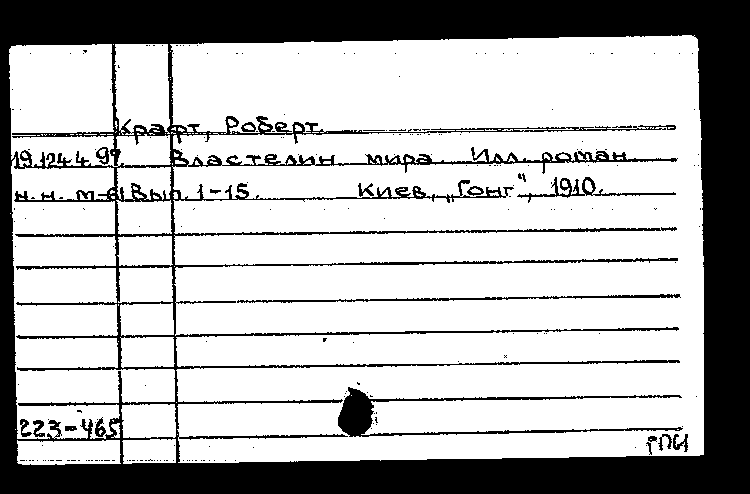 Крафт, Роберт.
19.124.4.97. Властелин мира. Илл. роман
н. н. т-6 Вып. 1-15. Киев, „Гонг", 1910.
223-465